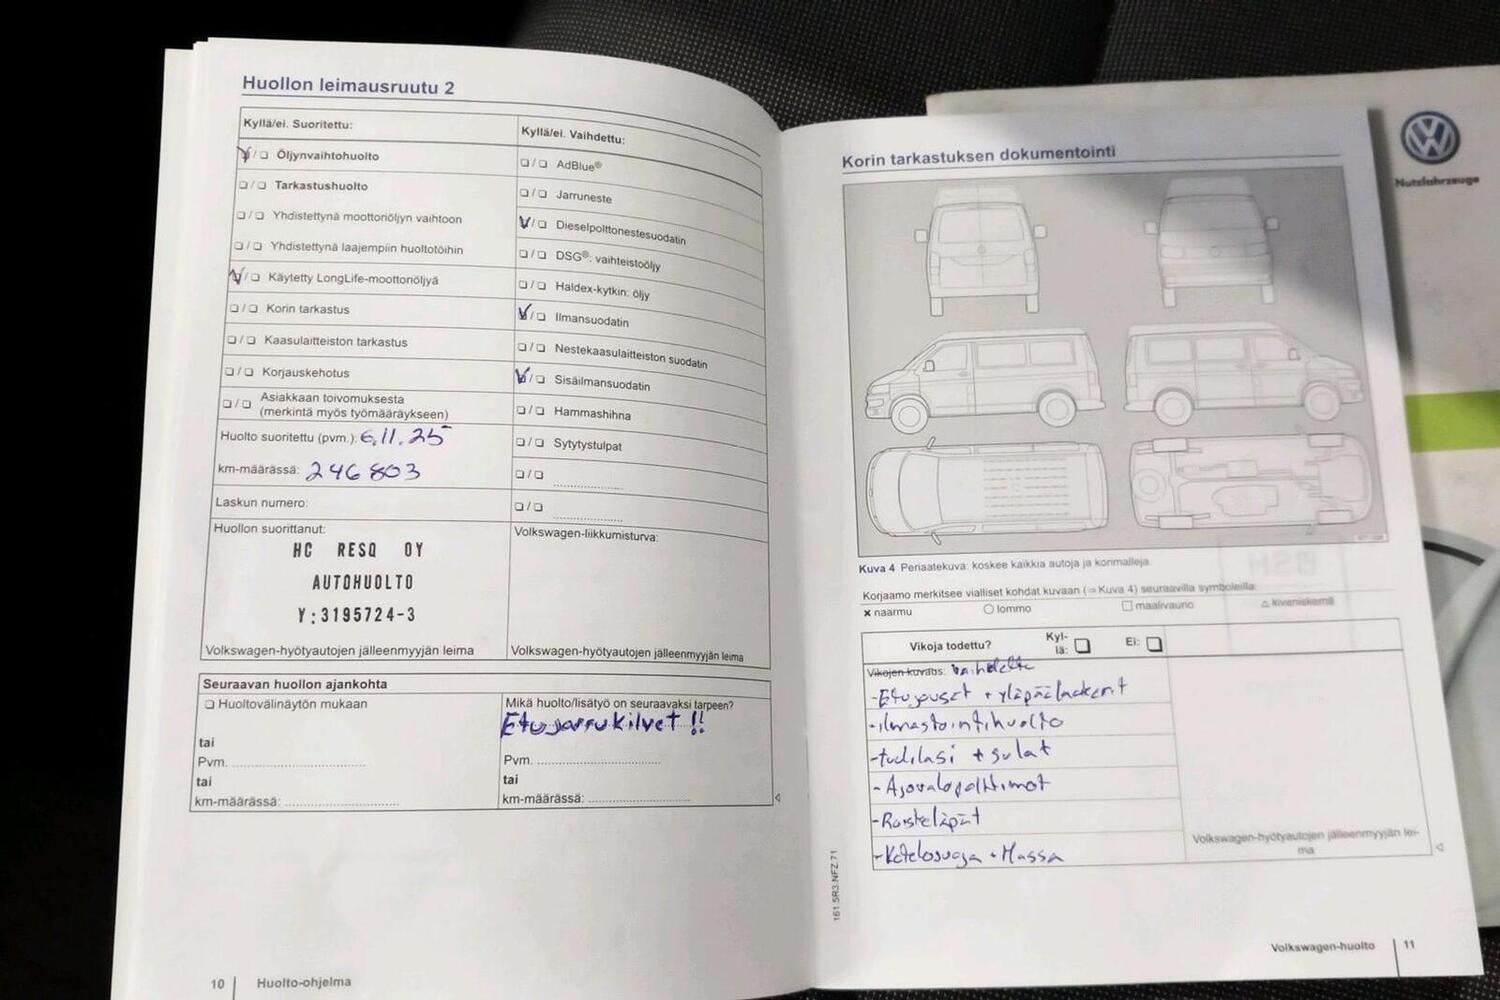 Huollon leimausruutu 2
Kyllä/ei. Suoritettu:
☑/☐ Öljynvaihtohuolto
☐/☐ Tarkastushuolto
☐/☐ Yhdistettynä moottoriöljyn vaihtoon
☐/☐ Yhdistettynä laajempiin huoltotöihin
☑/☐ Käytetty LongLife-moottoriöljyä
☐/☐ Korin tarkastus
☐/☐ Kaasulaitteiston tarkastus
☐/☐ Korjauskehotus
☐/☐ Asiakkaan toivomuksesta
(merkintä myös työmääräykseen)
Huolto suoritettu (pvm.): 6.11.25
km-määrässä: 246803
Laskun numero:
Huollon suorittanut:
HC RESQ OY
AUTOHUOLTO
Y:3195724-3
Volkswagen-hyötyautojen jälleenmyyjän leima
Kyllä/ei. Vaihdettu:
☐/☐ AdBlue®
☐/☐ Jarruneste
☑/☐ Dieselpolttonestesuodatin
☐/☐ DSG®: vaihteistoöljy
☐/☐ Haldex-kytkin: öljy
☑/☐ Ilmansuodatin
☐/☐ Nestekaasulaitteiston suodatin
☑/☐ Sisäilmansuodatin
☐/☐ Hammashihna
☐/☐ Sytytystulpat
☐/☐ ....................
☐/☐ ....................
Volkswagen-liikkumisturva:
Volkswagen-hyötyautojen jälleenmyyjän leima
Seuraavan huollon ajankohta
☐ Huoltovälinäytön mukaan
tai
Pvm. ....................
tai
km-määrässä: ....................
Mikä huolto/lisätyö on seuraavaksi tarpeen?
Etujarrukilvet !!
Pvm. ....................
tai
km-määrässä: ....................
10 | Huolto-ohjelma
Korin tarkastuksen dokumentointi
Kuva 4 Periaatekuva: koskee kaikkia autoja ja korimalleja.
Korjaamo merkitsee vialliset kohdat kuvaan (⇒ Kuva 4) seuraavilla symboleilla:
× naarmu ○ lommo □ maalivaurio △ kiveniskemä
Vikoja todettu? Kyl-
lä: ☐ Ei: ☐
Vikojen kuvaus: vaihdettu
-Etujouset + yläpäälaakerit
-ilmastointihuolto
-tuulilasi + sulat
-Ajovalopolttimot
-Roiskeläpät
-Kotelosuoja + Massa
Volkswagen-hyötyautojen jälleenmyyjän lei-
ma
161.5R3.NFZ.71
Volkswagen-huolto | 11
Nutzfahrzeuge